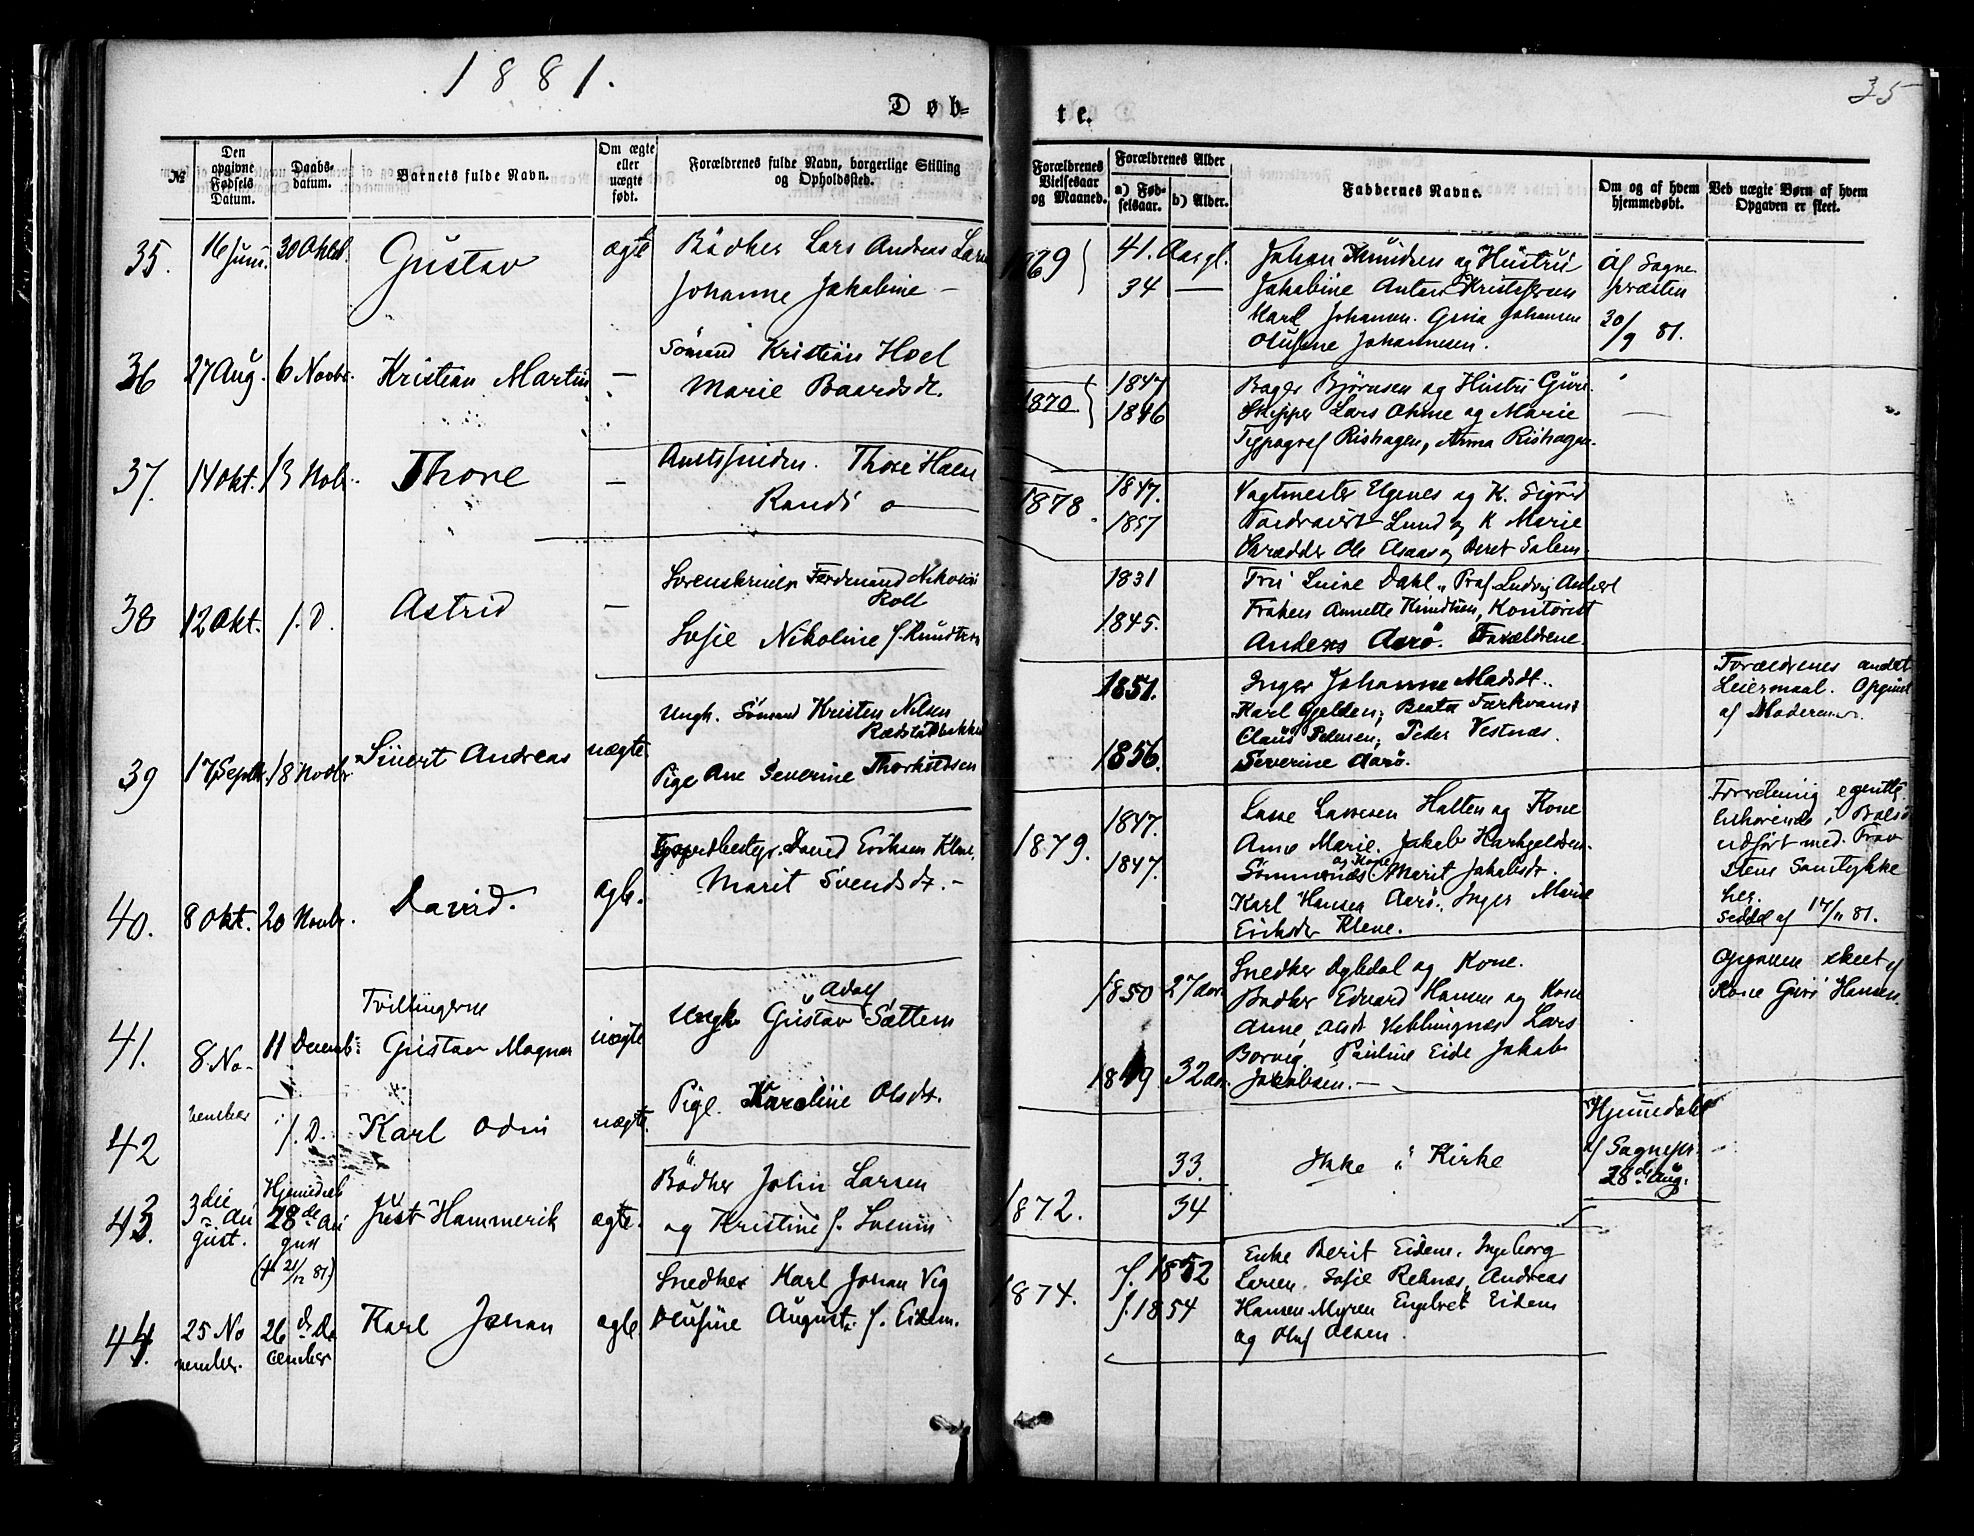 1881.
35
Døb-
te.
№
Den opgivne Fødsels Datum.
Daabs-datum.
Barnets fulde Navn.
Om ægte eller uægte født.
Forældrenes fulde Navn, borgerlige Stilling og Opholdssted.
Forældrenes Vielsesaar og Maaned.
Forældrenes Alder
a) Fød-selsaar.
b) Alder.
Faddernes Navne.
Om og af hvem hjemmedøbt.
Ved uægte Børn af hvem Opgaven er skeet.
35. 16 Juni. 30 Oktb. Gustav ægte Bødker Lars Andreas
Johanne Jakobine —
1869 41. Aar gl.
34 —
Johan Knudsen og Hustru
Jakobine Anton Kristensen
Karl Johansen. Gina Johansen
Olufine Johannesen.
Af Sogne
præsten
30/9 81.
36 27 Aug. 6 Novbr. Kristian Martin —
Sømand Kristian Hoel
Marie Baardsdt.
1870 1847
1846
Bager Bjørnsen og Hustru Guri
Skipper Lars Ohme og Marie
Typograf Rishagen, Anna Rishagen.
37. 14 Okt. 13 Nobr. Thore —
Thore
Randi
1878. 1847.
1857
Vagtmester Elgenes og K. Sigrid
Lund og K Marie
Skrædder Ole og Beret Solem.
38 12 Okt. f. D. Astrid —
Sorenskriver Ferdinand Nikolai
Roll
Sofie Nikoline f. Knudtzon
1831
1845.
Fru Luise Dahl, Prof. Ludvig
Frøken Annette Knudtzon, Kontorist
Anders Aarø. Forældrene.
39 17 Septb. 18 Novbr. Siuert Andreas uægte
Ungk. Sømand Kristen Nilsen
Pige Ane Severine Thorkildsen
1851.
1856.
Inger Johanne Madsdt.
Karl Gjelden; Beata
Claus Pedersen, Peder Vestnæs.
Severine Aarø.
Forældrenes andet
Leiermaal. Opgivet
af Moderen
40. 8 Okt. 20 Novbr. David. ægte.
David Eriksen Klene,
Marit Svendsdt. —
1879. 1847.
1847.
Lasse Lassesen Hatten og Kone
Anne Marie. Jakob
Sømmenæs og Kone Marit Jakobsdt.
Karl Hansen Aarø. Inger Marie
Eriksdtr Klene.
udført med
Stens Samtykke
Seddel af 17/11 81.
Tvillingerne
41. 8 No- 11 Decemb. Gustav Magnar uægte
Ungk. Gustav Adolf Sættem
1850 27 Aar.
Snedker Dybdal og Kone.
Bødker Edvard Hansen og Kone
Anne, Veblungnæs Lars
Borvig, Pauline Eide Jakob
Jakobsen. —
Opgaven skeet af
Kone Guri Hansen
42 vember f. D. Karl Odin uægte
Pige. Karoline Olsdt.
1849 32 Aar.
43. 3die Au
gust.
Hjemdøbt
28de Au
gust
(† 21/12 81)
Just Hammerik ægte.
Bødker John Larsen
og Kristine f.
1872. 33.
34
Ikke i Kirke
Hjemdøbt
af Sognepr.
28de Aug.
44. 25 No
vember.
26 de De
cember
Karl Johan ægte
Snedker Karl Johan Vig
Olufine August. f. Eidem.
1874. f. 1852
f. 1854
Enke Berit Eidem. Ingeborg
Larsen. Sofie Reknæs, Andreas
Hansen Myren Engebret Eidem
og Oluf Olsen.